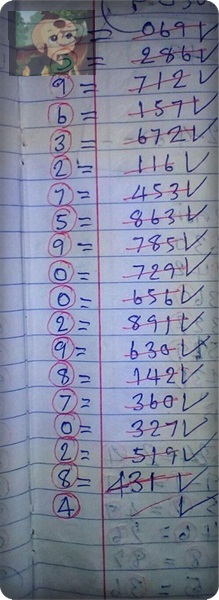 = 0691✓
5 = 286✓
9 = 712✓
6 = 157✓
3 = 672✓
2 = 116✓
7 = 453✓
5 = 863✓
9 = 785✓
0 = 729✓
0 = 656✓
2 = 891✓
9 = 630✓
8 = 142✓
7 = 360✓
0 = 327✓
2 = 519✓
8 = 431✓
4 ✓